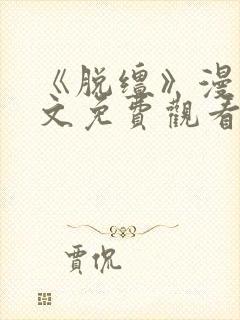 《脱缰》漫
文免費觀看
賈侃